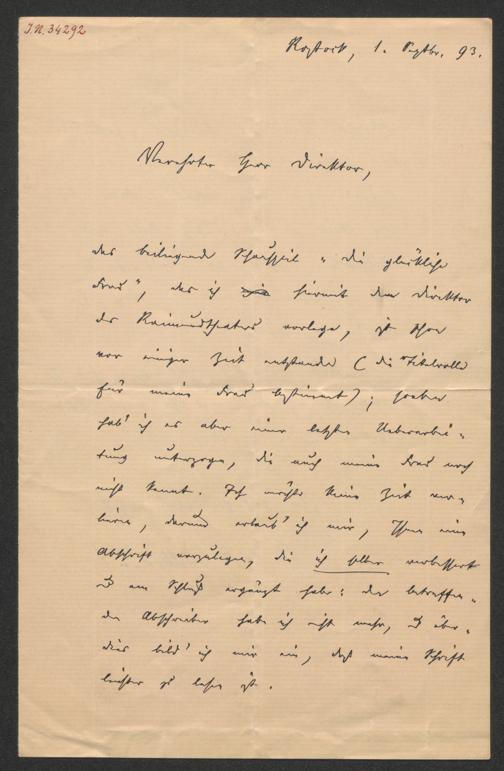 I.N. 34292
Rostock, 1. Septbr. 93.
Verehrter Herr Direktor,
das beiliegende Schauspiel „die glückliche
Frau", das ich hiermit dem Direktor
des Raimundtheaters vorlege, ist schon
vor einiger Zeit entstanden (die Titelrolle
für meine Frau bestimmt); soeben
hab' ich es aber einer letzten Ueberarbei-
tung unterzogen, die auch meine Frau noch
nicht kennt. Ich möchte keine Zeit ver-
lieren, darum erlaub' ich mir, Ihnen eine
Abschrift vorzulegen, die ich selber verbessert
u am Schluß ergänzt habe: den betreffen-
den Abschreiber hab ich nicht mehr, u über-
dies bild' ich mir ein, daß meine Schrift
leichter zu lesen ist.